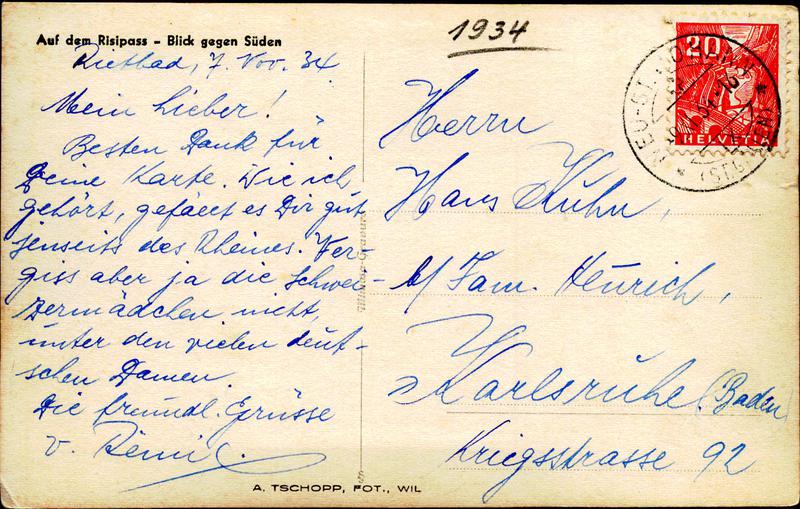 Auf dem Risipass – Blick gegen Süden
Rietbad, 7. Nov. 34
Mein Lieber!
Besten Dank für
Deine Karte. Wie ich
gehört, gefällt es Dir gut
jenseits des Rheines. Ver-
giss aber ja die Schwei-
zermädchen nicht,
unter den vielen deut-
schen Damen.
Die freundl. Grüsse
v.
A. TSCHOPP, FOT., WIL
1934
20
HELVETIA
NEU-ST. JOHANN
(ST. GALLEN)
Herrn
Hans Kuhn,
b/ Fam. Heurich,
Karlsruhe (Baden)
Kriegsstrasse 92